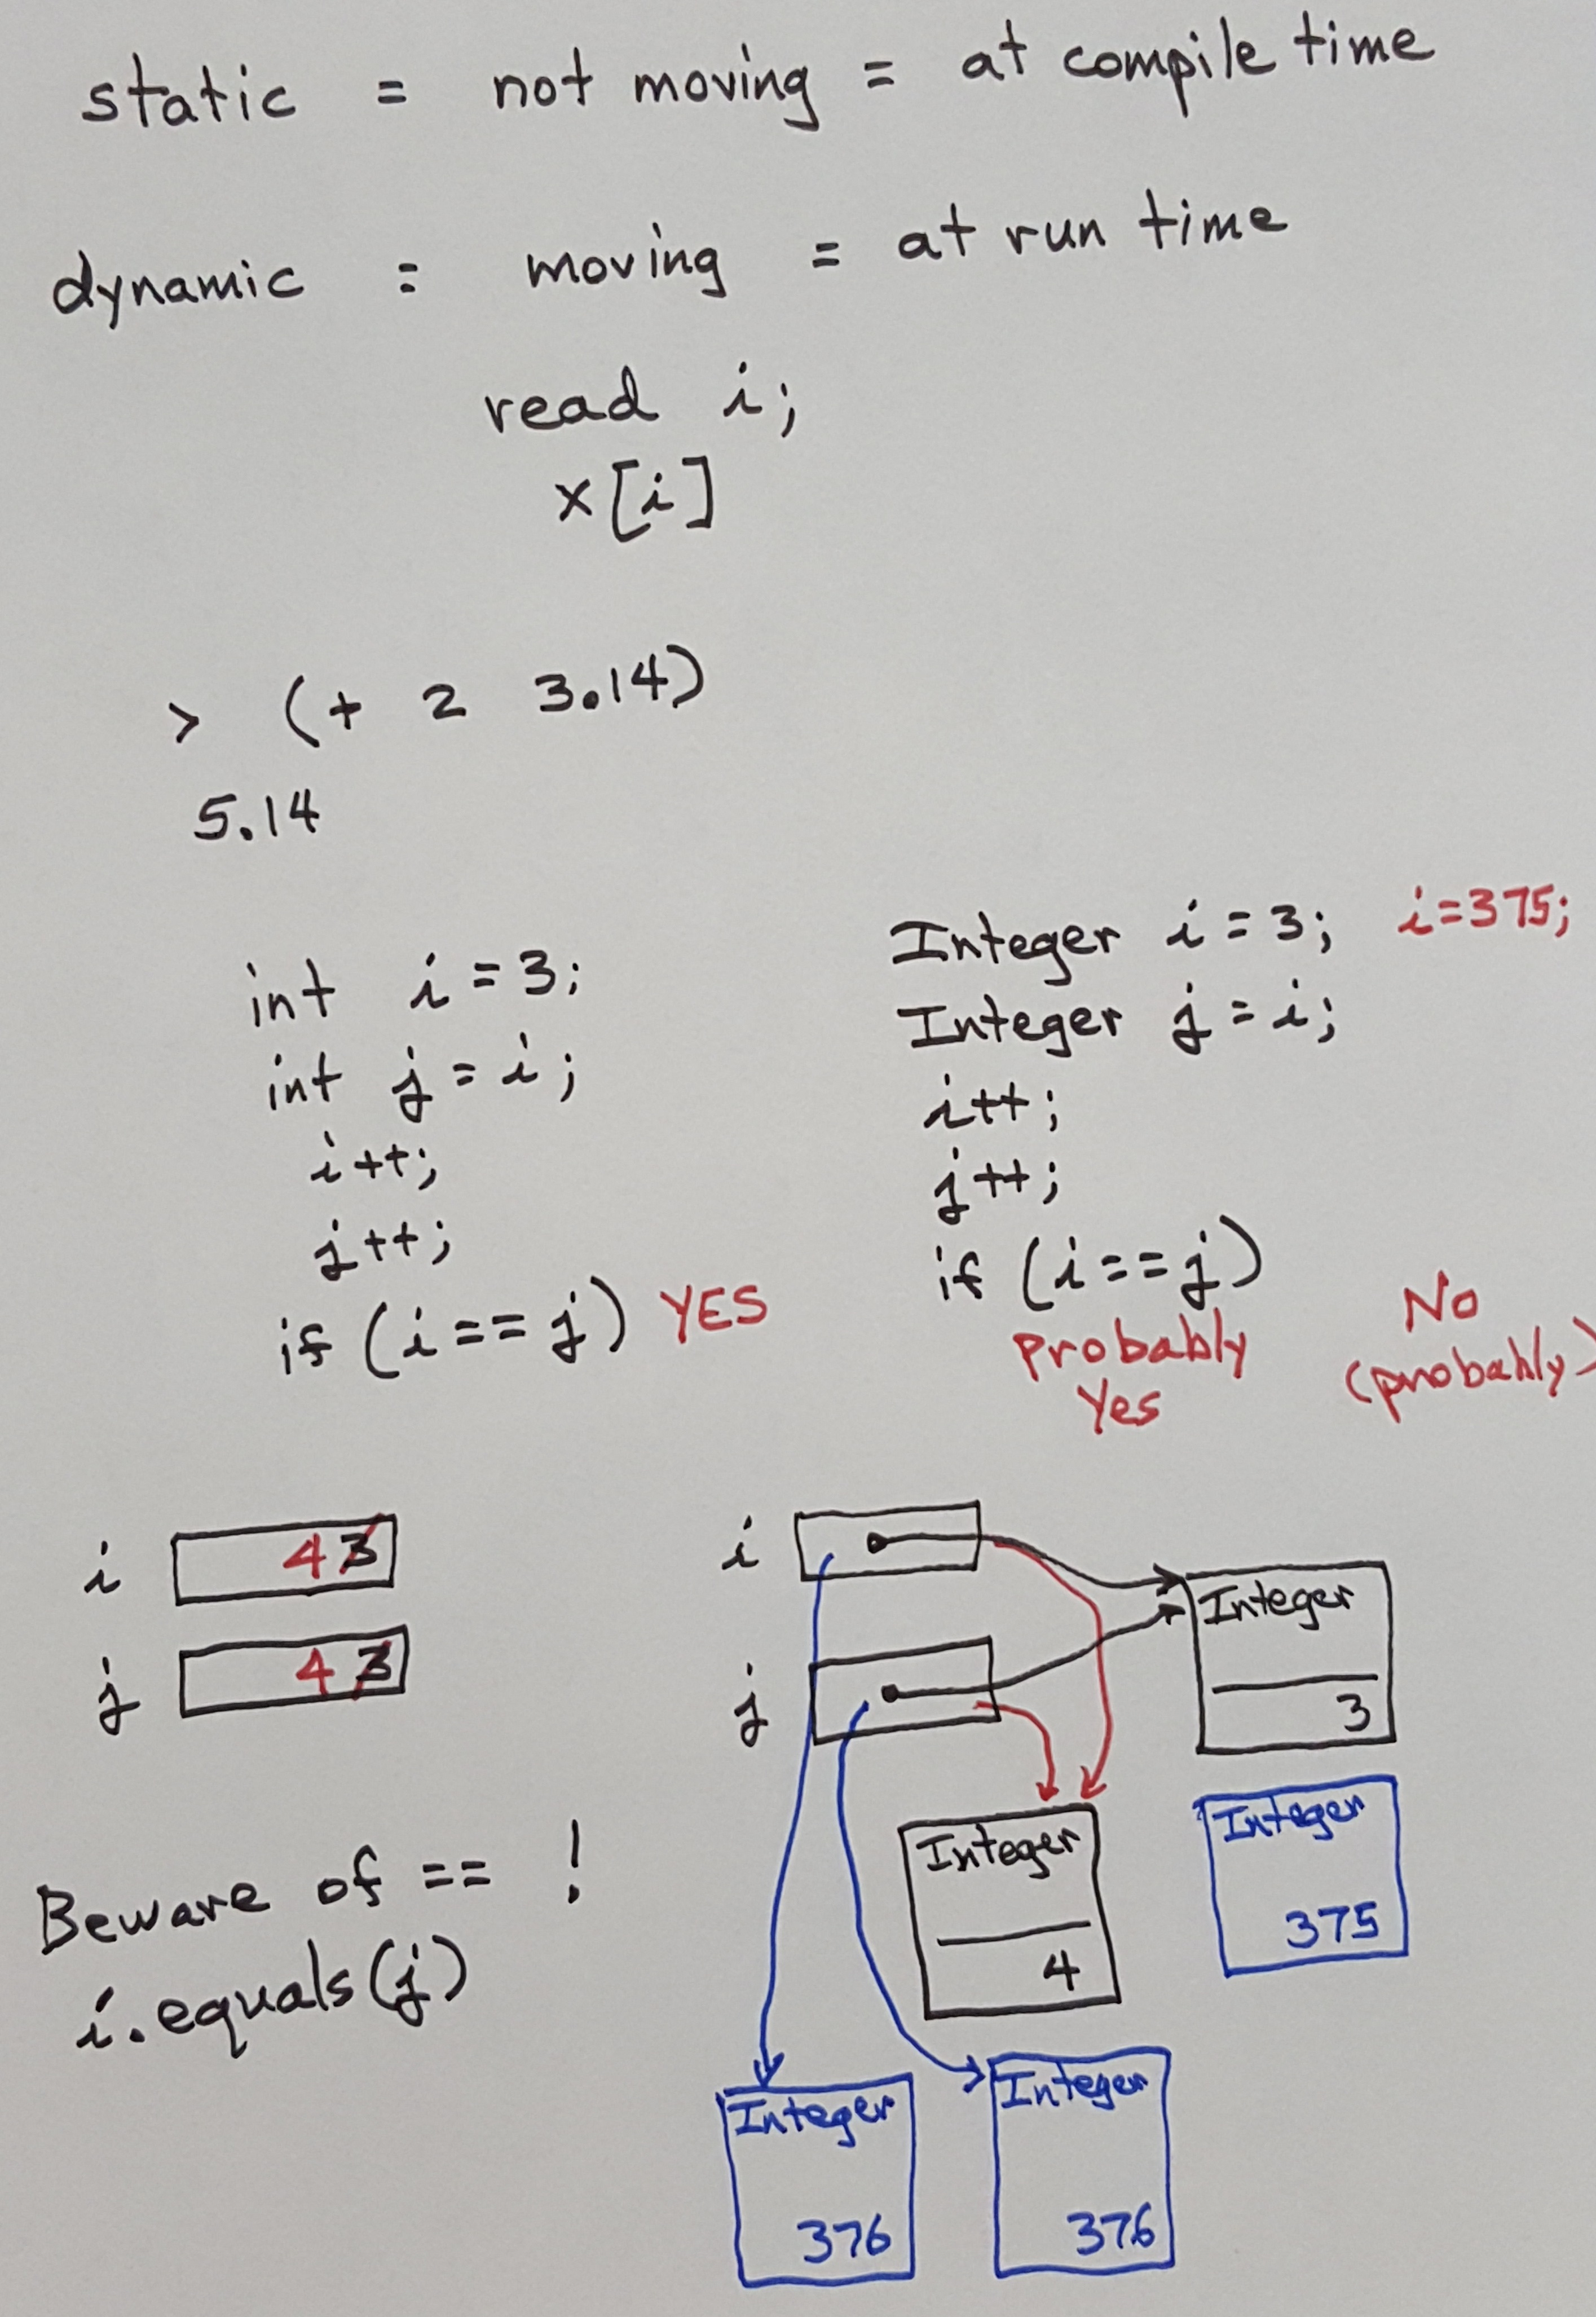 static = not moving = at compile time
dynamic = moving = at run time
read i;
x[i]
> (+ 2 3.14)
5.14
int i = 3;
int j = i;
i++;
j++;
if (i == j) YES
Integer i = 3; i=375;
Integer j = i;
i++;
j++;
if (i == j)
Probably
Yes
No
(probably)
i 4 3
j 4 3
i
j
Integer
3
Integer
4
Integer
375
Integer
376
Integer
376
Beware of == !
i.equals(j)